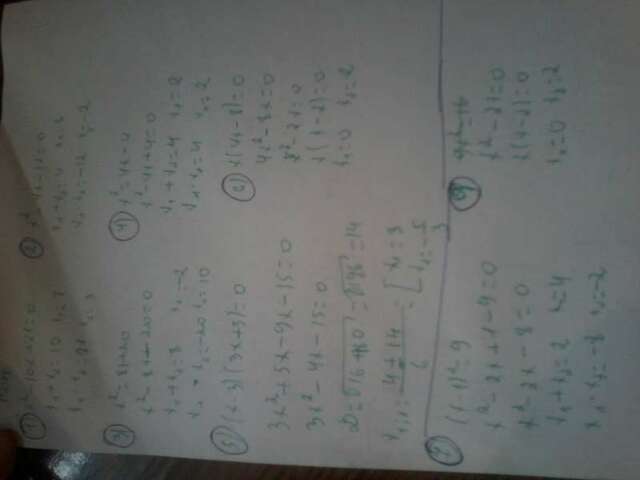 ① x²-10x+21=0
x₁+x₂=10 x₁=7
x₁·x₂=21 x₂=3
② x²-x-12=0
x₁·x₂=-12
③ x²=8x+20
x²-8x-20=0
x₁+x₂=8 x₁=-2
x₁·x₂=-20 x₂=10
④ x²=4x-4
x²-4x+4=0
x₁+x₂=4 x₁=2
x₁·x₂=4 x₂=2
⑤ (x-3)(3x+5)=0
3x²+5x-9x-15=0
3x²-4x-15=0
D=√16+180=√196=14
x₁,₂=4±14/6=[x₁=3
x₂=-5/3
⑥ x(4x-8)=0
4x²-8x=0
x²-2x=0
x(x-2)=0
x₁=0 x₂=2
⑦ (x-1)²=9
x²-2x+1-9=0
x²-2x-8=0
x₁+x₂=2 x₁=4
x₁·x₂=-8 x₂=-2
x²-2x=0
x(x-2)=0
x₁=0 x₂=2